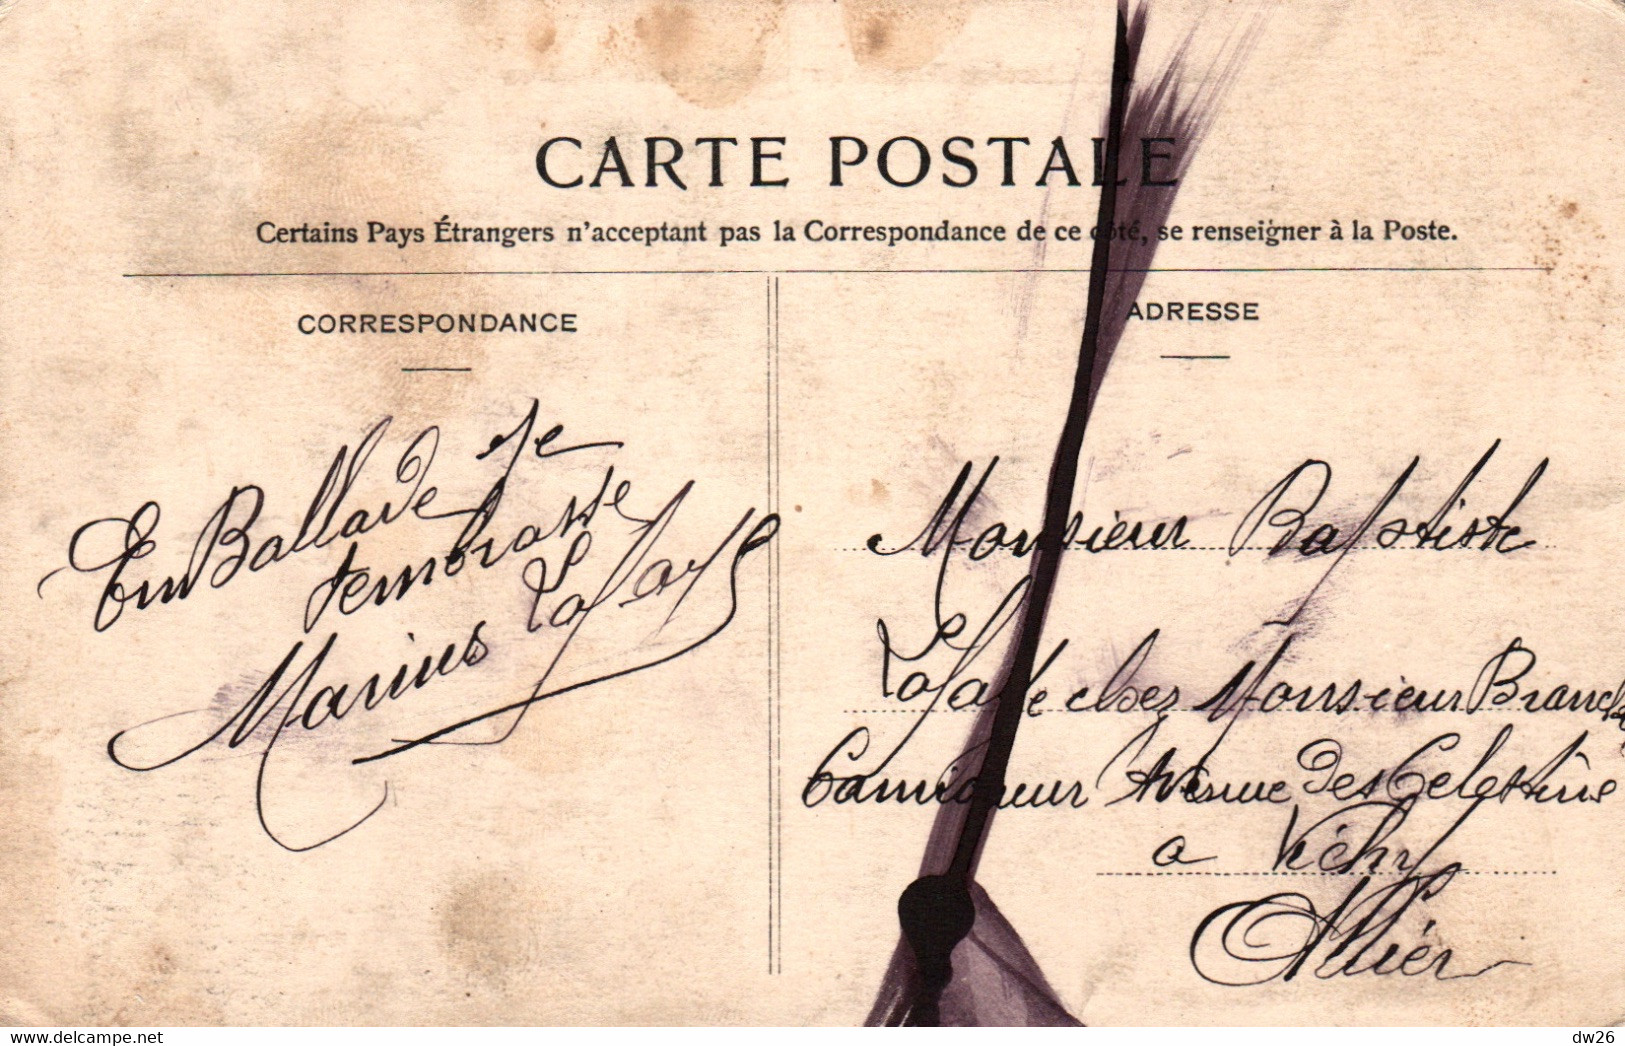 CARTE POSTALE
Certains Pays Étrangers n'acceptant pas la Correspondance de ce côté, se renseigner à la Poste.
CORRESPONDANCE
En Ballade Je
tembrasse
Marius Lafaye
ADRESSE
Monsieur Baptiste
Lafaye chez Monsieur Branch
Camioneur Avenue des Celestins
a Vichy
Allier
www.delcampe.net
dw26